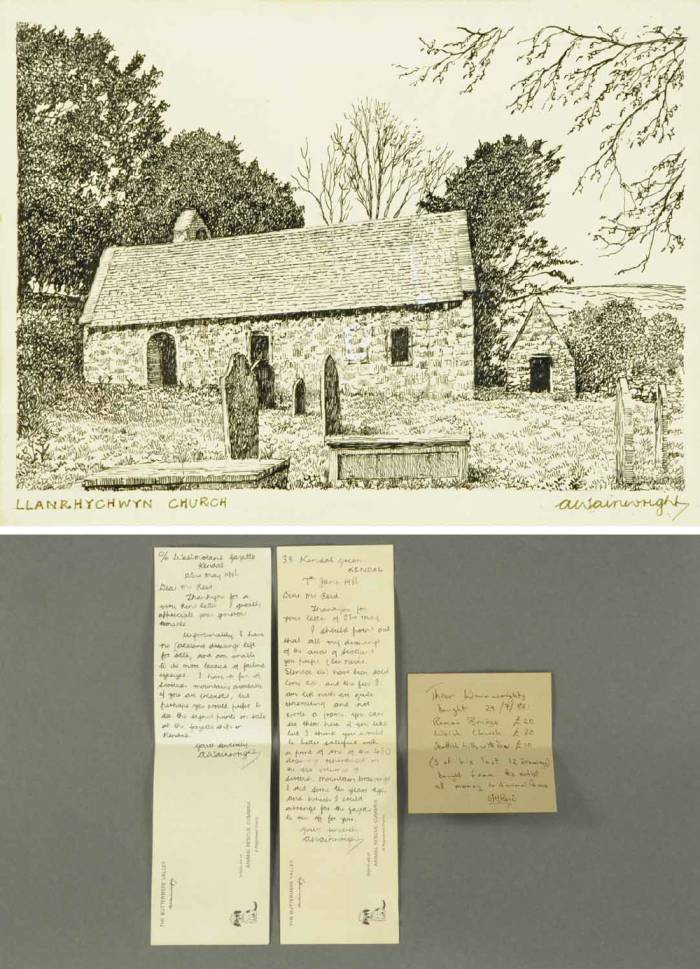 LLANRHYCHWYN CHURCH
awainwright
c/o Westmorland Gazette
Kendal
May 1986
Dear Mr Reid
Thankyou for a
very kind letter. I greatly
appreciate your generous
remarks
Unfortunately I have
no Lakeland drawings left
for sale, and am unable
to do more because of failing
eyesight. I have a few of
Scottish mountains available
if you are interested, but
perhaps you would prefer to
see the signed prints on sale
at the Gazette shop in
Kendal.
Yours sincerely,
awainwright
THE BUTTERMERE VALLEY
awainwright
ANIMAL RESCUE, CUMBRIA
A Registered Charity
38 Kendal Green
KENDAL
7th June 1986
Dear Mr Reid
Thankyou for
your letter of 31st May.
I should point out
that all my drawings
of the areas of Scotland
you prefer (Ben Nevis,
Glencoe etc) have been sold
long ago, and the few I
am left with are quite
and not
worth a room. You can
see them here if you like
but I think you would
be better satisfied with
a print of one of the 450
drawings reproduced in
the six volumes of
Scottish Mountain Drawings
I did some ten years ago,
and which I could
arrange for the Gazette
to run off for you.
Yours sincerely
awainwright
THE BUTTERMERE VALLEY
awainwright
ANIMAL RESCUE, CUMBRIA
A Registered Charity
Three Wainwrights
bought 29/7/86:
Roman Bridge £20
Welsh Church £20
Scottish £10
(3 of his last 12 drawings)
bought from the artist
all money to Animal Rescue